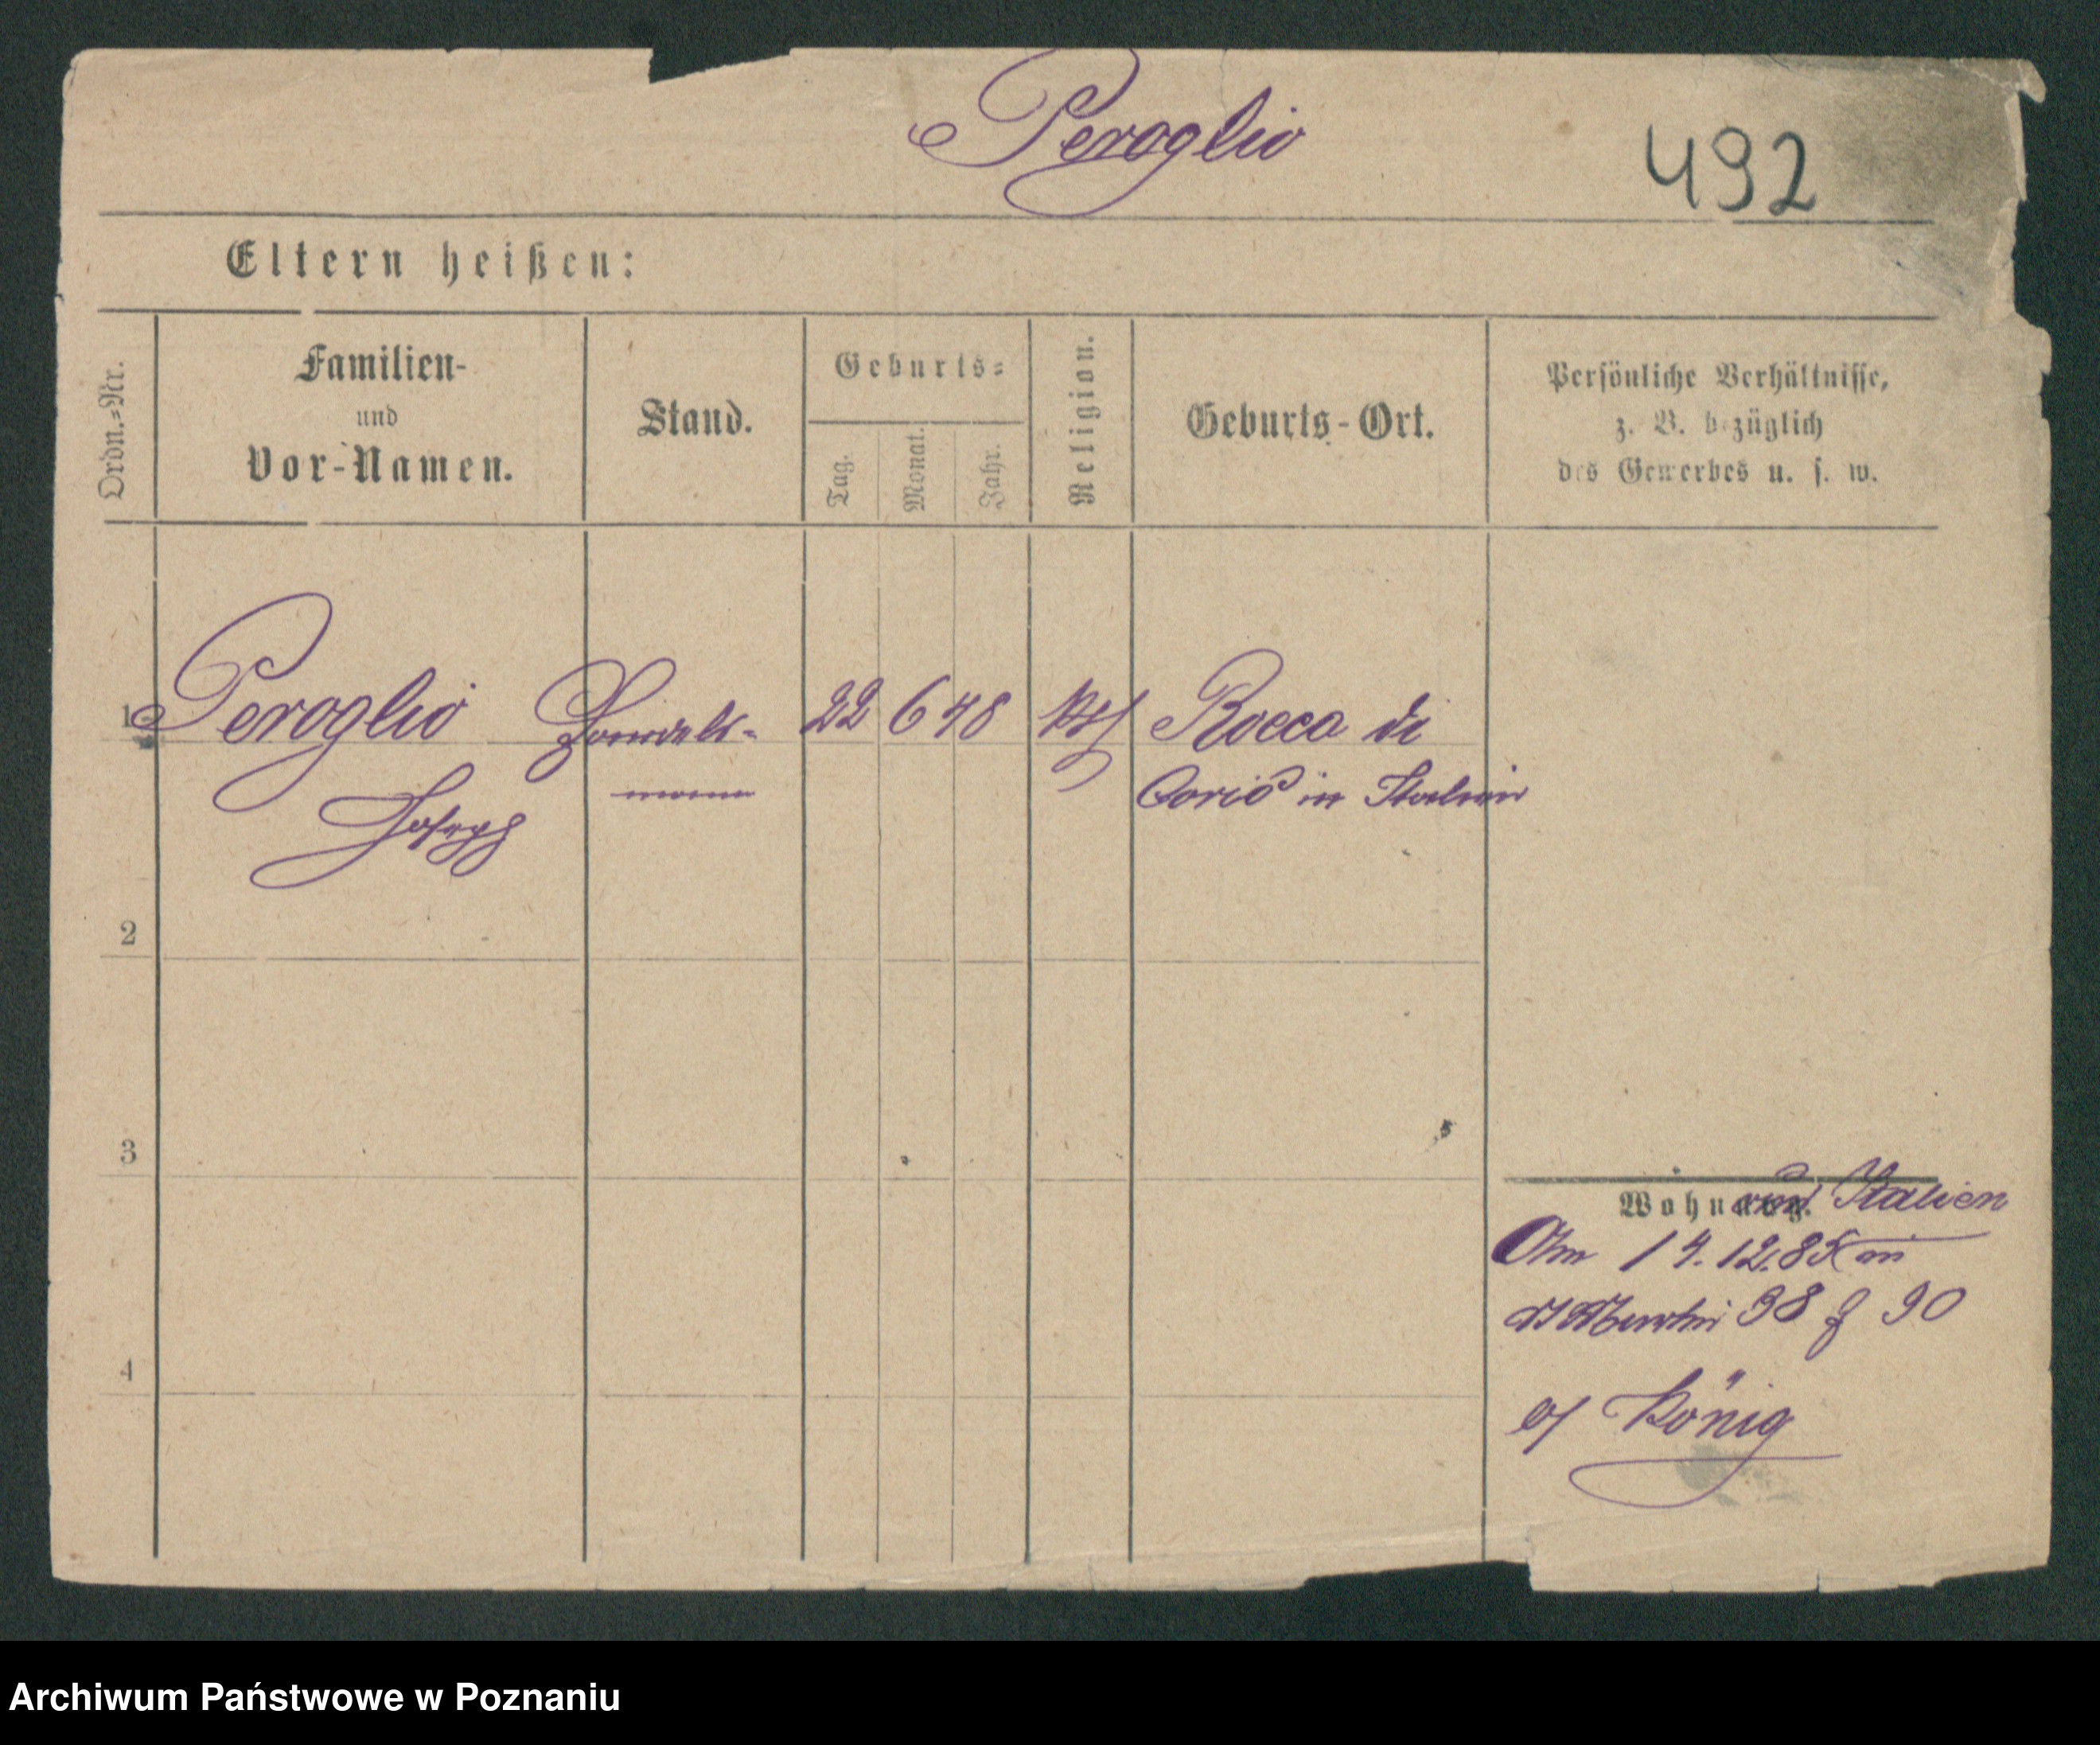 Peroglio
492
Eltern heißen:
Ordn.-Nr.
Familien-
und
Vor-Namen.
Stand.
Geburts-
Tag.
Monat.
Jahr.
Religion.
Geburts-Ort.
Persönliche Verhältnisse,
z. B. bezüglich
des Gewerbes u. s. w.
1 Peroglio Handels- 22 6 48 Rocca di
Joseph mann Corio in Italien
2
3
4
Wohnung.
aus Italien
Am 14.12.85 in
38 90
König
Archiwum Państwowe w Poznaniu